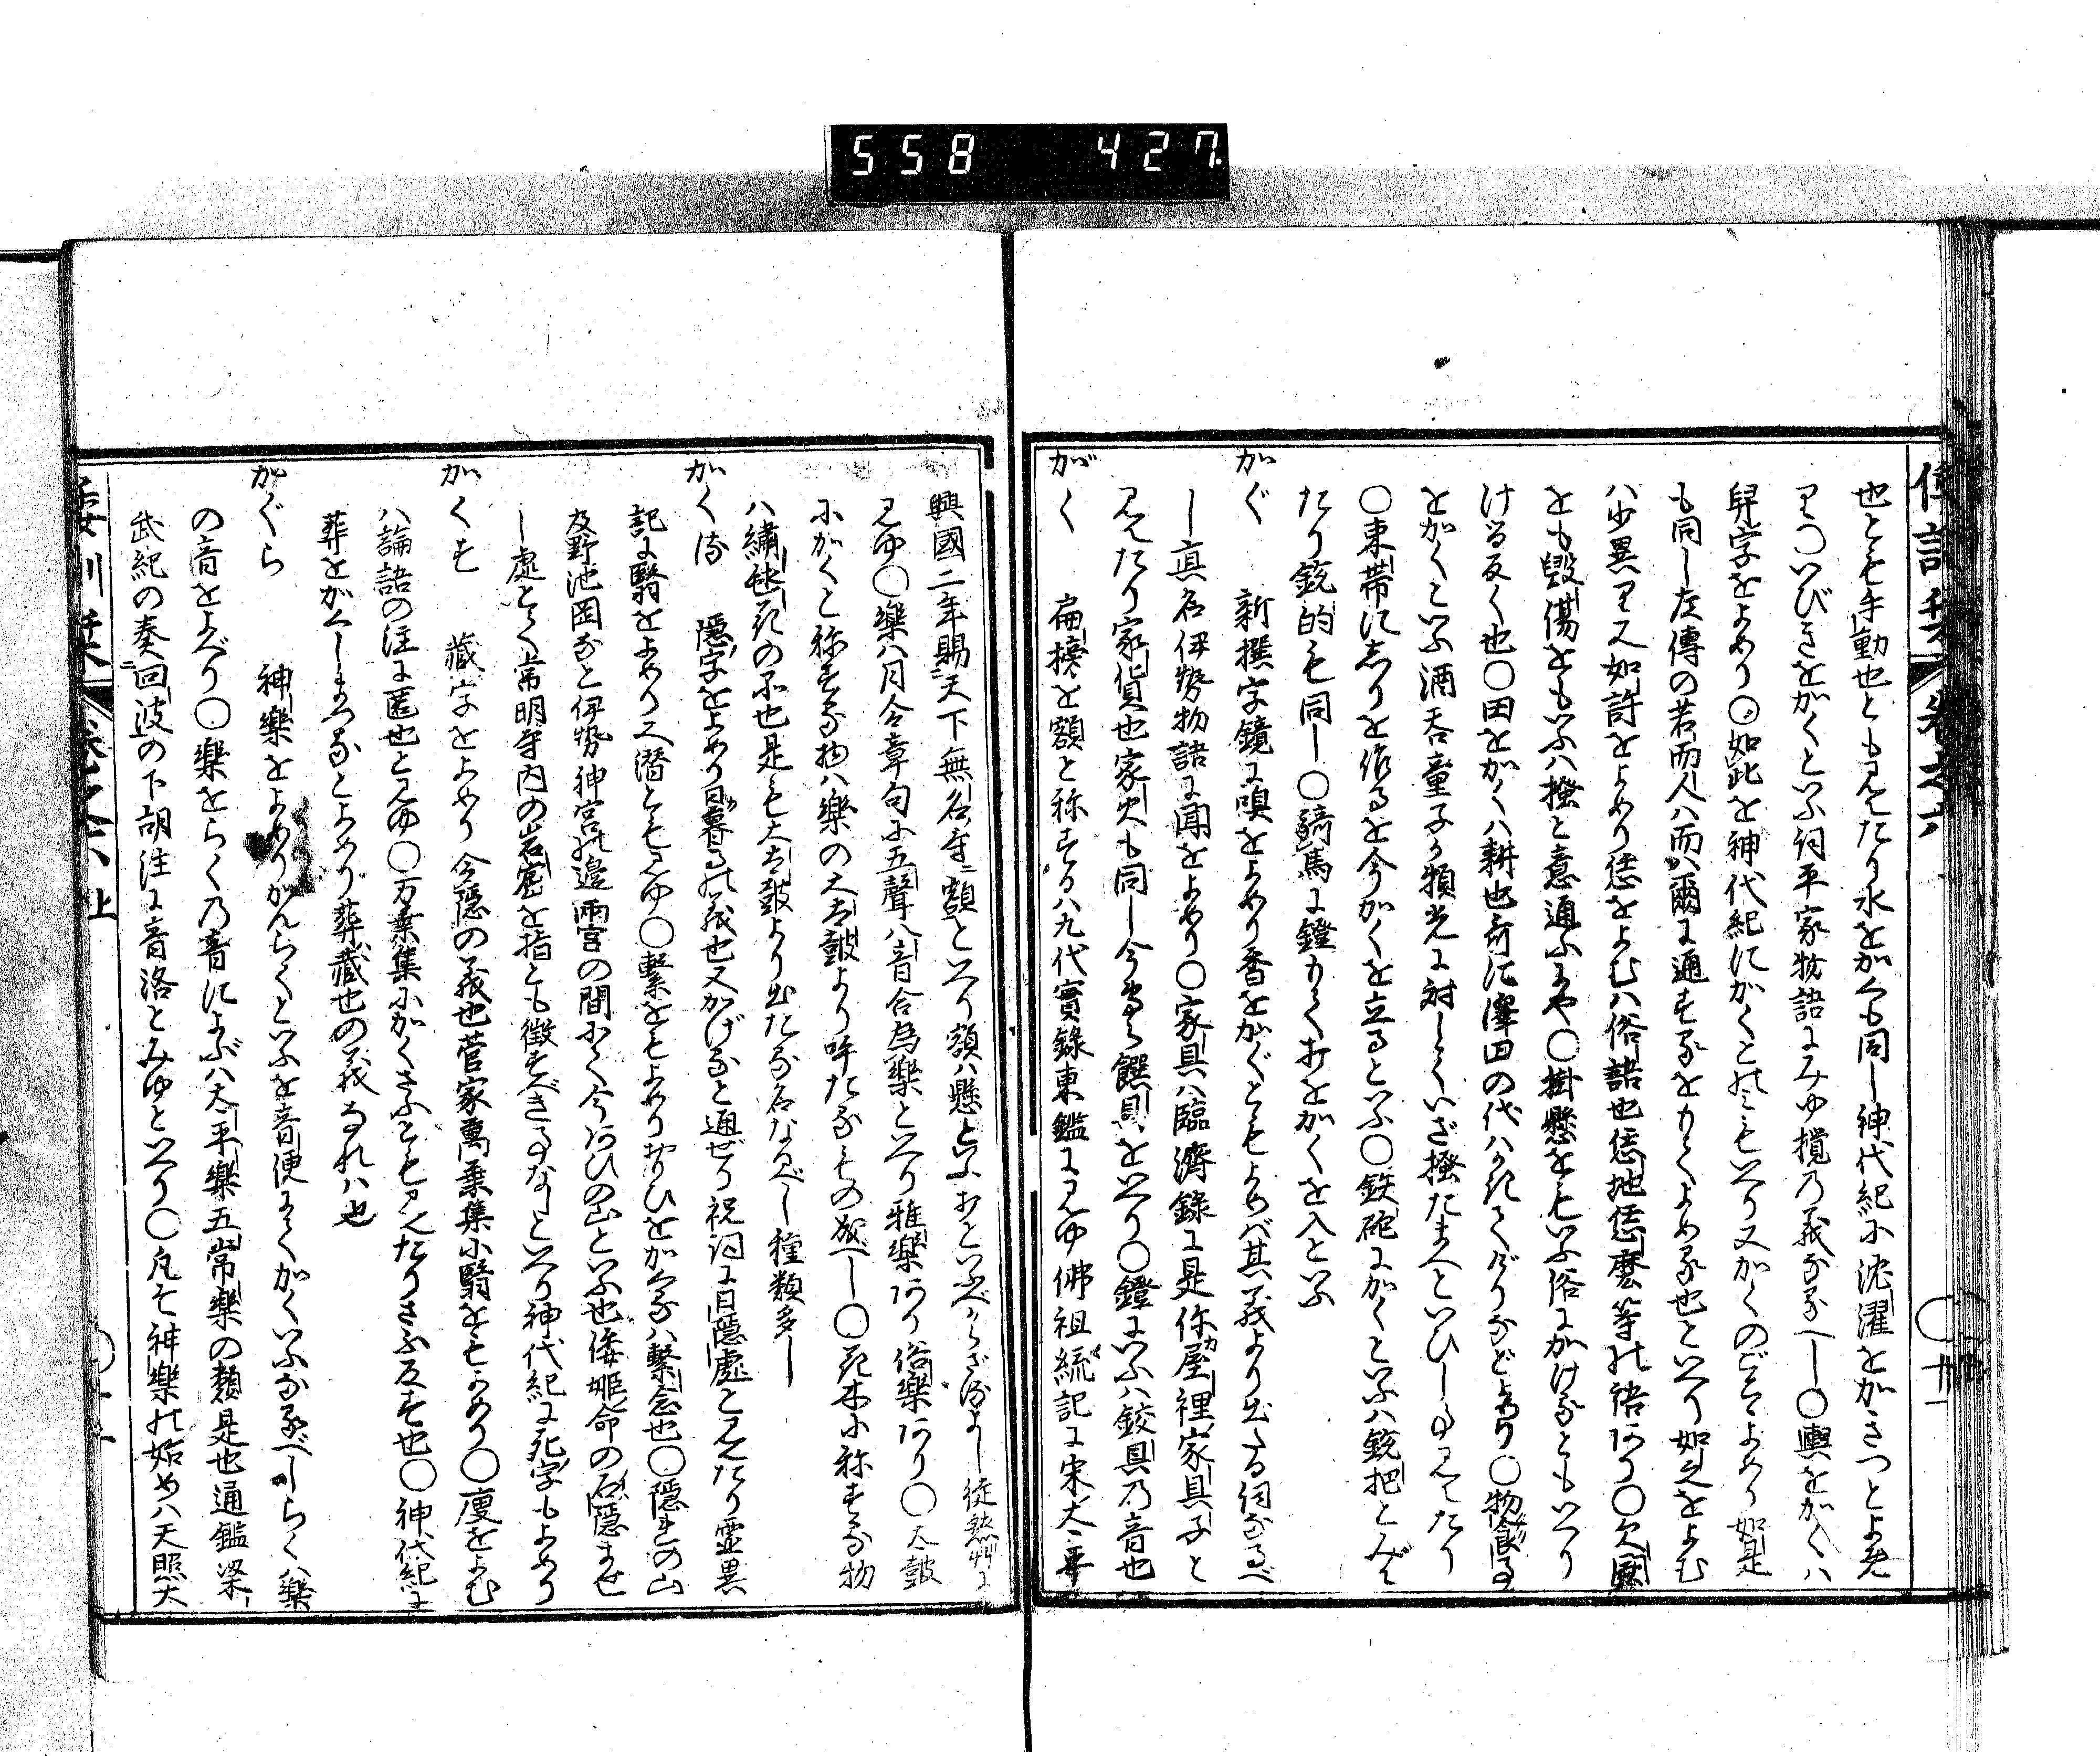 558 427
倭訓栞 卷之六 ○廿一
也とも手動也とも見えたり水をかくも同し神代紀に沈濯をかきつとよめ
り○いびきをかくといふ詞平家物語にみゆ撹の義なるへし○輿をかくハ
舁字をよめり○如此を神代紀にかくとのみもいへり又かくのごとよめり如是
も同し左傳の若而人ハ而ハ爾に通するをもてよめる也といへり如之をよむ
ハ少異り又如許をよめり恁をよむハ俗語也恁地恁麼等の語あり○欠闕
をも毀傷をもいふハ掻と意通ふにや○掛懸をもいふ俗にかけるともいへり
ける反く也○田をかくハ耕也哥に澤田の代ハかきてなどよめり○物食る
をかくといふ酒呑童子か頼光に対していざ掻たまへといひし事見えたり
○束帯に志りを作るを今かくを立るといふ○鉄砲にかくといふハ銃把とみゆ
たり銃的も同し○騎馬に鐙もて打をかくを入といふ
かぐ 新撰字鏡に嗅をよめり香をかぐともよめば其義より出たる詞なるべ
し真名伊勢物語に聞をよめり○家具ハ臨濟錄に是你屋裡家具子と
見えたり家貨也家火も同し今専ら饌具をいへり○鐙にいふハ鉸具の音也
がく 扁榜を額と称するハ九代實錄東鑑に見ゆ佛祖統記に宋太平
興國二年賜天下無名寺額といへり額ハ懸といふおといふべからざるよし徒然艸に
見ゆ○樂ハ月令章句に五聲八音合為樂といへり雅樂あり俗樂あり○太鼓
にがくと称するものハ樂の大太鼓より呼たるもの成へし○花木に称する物
ハ繡毬花の木也是も大太鼓より出たる名なるべし種類多し
かくる 隠字をよめり日暮るの義也又かげると通ぜり祝詞に日隠處と見えたり霊異
記に翳をよめり又潜とも見ゆ○繋をもよめりおもひをかくるハ繋念也○隠れの山
及野池岡など伊勢神宮の邊兩宮の間にて今あひの山といふ也倭姫命の石隠ませ
し處とて常明寺内の岩窟を指とも徴すべき事なしといへり神代紀に死字もよめり
かくす 藏字をよめり令隠の義也菅家萬葉集に翳をもよめり○廋をよむ
ハ論語の注に匿也と見ゆ○万葉集にかくさふとも見えたりさふ反す也○神代紀に
葬をかくしまつるとよめり葬藏也の義あれハ也
かぐら 神樂をよめりかんらくといふを音便にてかくいふなるべしらくハ樂
の音をよべり○樂をらくの音によぶハ太平樂五常樂の類是也通鑑梁
武紀の奏回波の下胡注に音洛とみゆといへり○凡そ神樂の始めハ天照大
倭訓栞 卷之六 上